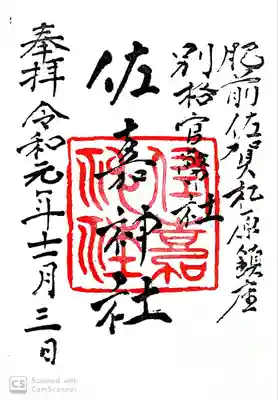 肥前佐賀松原鎮座
別格官幣社
佐嘉神社
奉拝 令和元年十一月三日
佐嘉
神社
Scanned with
CamScanner
CS